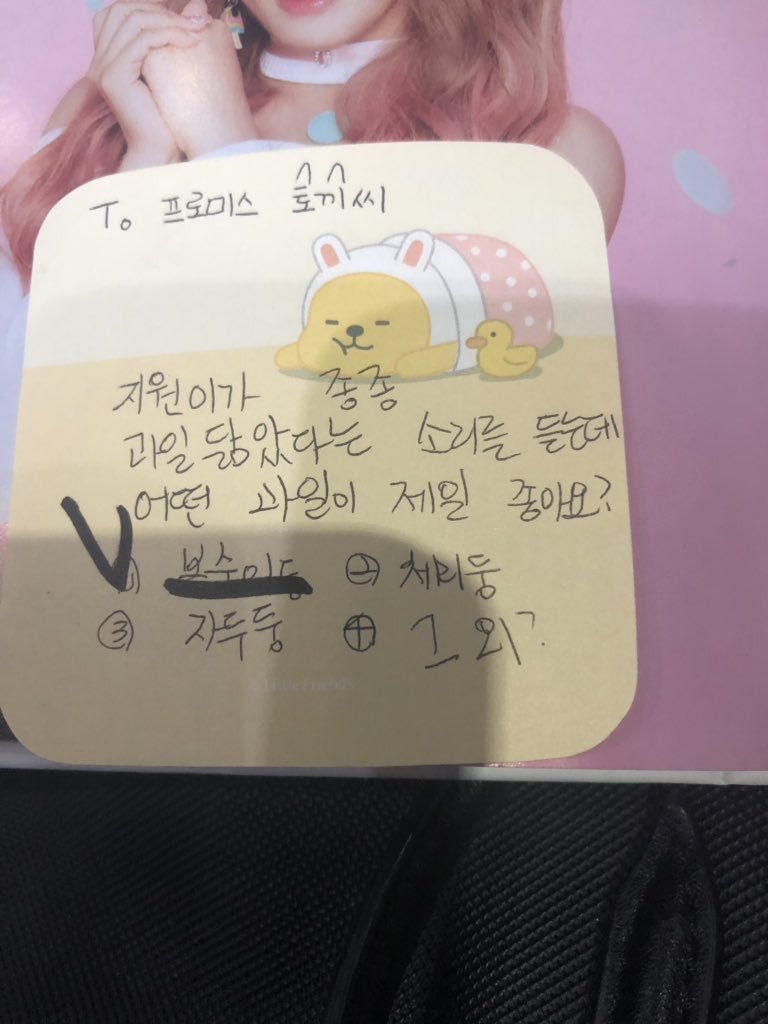 To 프로미스 토끼씨
지원이가 종종
과일 닮았다는 소리를 듣는데
어떤 과일이 제일 좋아요?
① 복숭이둥 ② 체리둥
③ 자두둥 ④ 그 외?
Little Friends